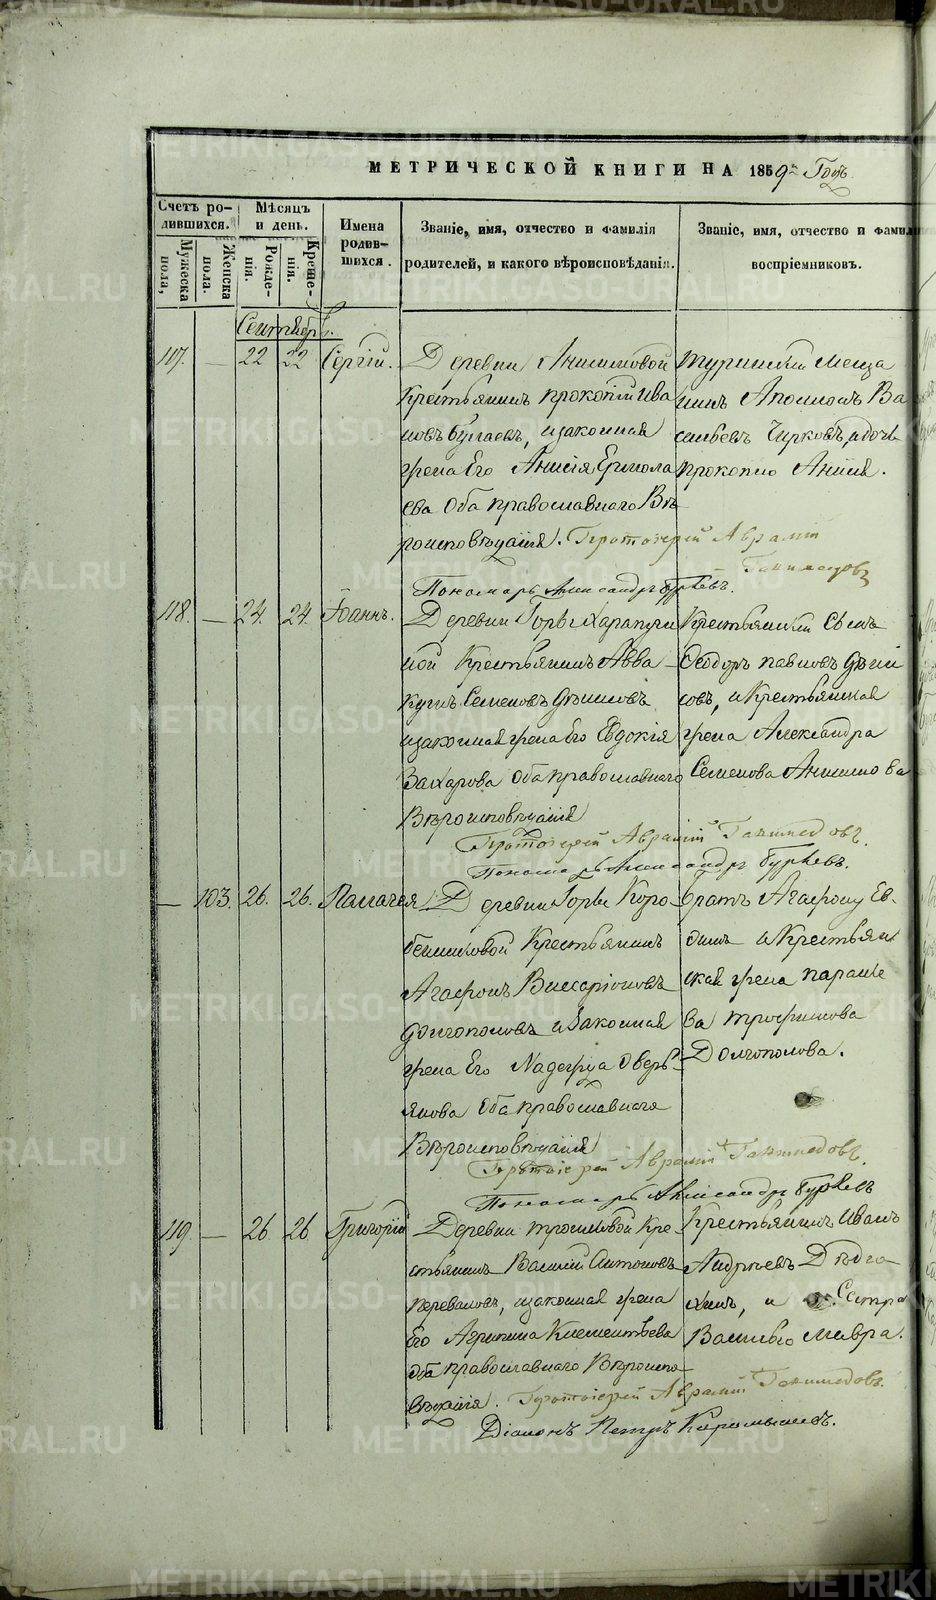 МЕТРИЧЕСКОЙ КНИГИ НА 1859й Годъ
Счетъ ро-
дившихся.
Мужеска
пола,
Женска
пола.
Мѣсяцъ
и день.
Рожде-
нія.
Креще-
нія.
Имена
родив-
шихся.
Званіе, имя, отчество и фамилія
родителей, и какого вѣроисповѣданія.
Званіе, имя, отчество и фамил
воспріемниковъ.
Сентябрь.
117. — 22 22 Сергій.
Деревни Анисимовой
Крестьянинъ Прокопій Ива
новъ Бушаевъ, изаконная
жена Его Анисія Ермола
ева Оба православнаго Вѣ
роисповѣданія. Протоіерей Аврамій
Ганимедовъ
Пономарь Александръ Бурževъ.
Туринскій Меща
нинъ Аполлонъ Ва
сильевъ Чирковъ, и дочь
Прокопію Анисія.
118. — 24. 24. Іоаннъ.
Деревни Горы Харапуги
ной Крестьянинъ Авва
кумъ Семеновъ Дѣшисовъ
изаконная жена Его Евдокія
Захарова Оба православнаго
Вѣроисповѣданія
Протоіерей Аврамій Ганимедовъ.
Крестьянскій Сынъ
Ѳеодоръ Павловъ
совъ, и Крестьянская
жена Александра
Семенова Анисимова
— 103. 26. 26. Пелагея
Деревни Горы Коро-
бейниковой Крестьянинъ
Агафонъ Виссаріоновъ
Долгополовъ и Законная
жена Его Надежда Оверь-
янова Оба православнаго
Вѣроисповѣданія
Протоіерей Аврамій Ганимедовъ.
Братъ Агафону Ев-
и Крестьян
ская жена Параске
ва Трофимова
Долгополова.
119. — 26. 26 Григорій
Деревни Трошковой Кре-
стьянинъ Василій Антоновъ
Переваловъ, изаконная жена
Его Агрипина Климентьева
Оба православнаго Вѣроиспо-
вѣданія. Протоіерей Аврамій Ганимедовъ.
Діаконъ Петръ Карамышевъ.
Крестьянинъ Иванъ
Андреевъ Дѣдю
хинъ, и Сестра
Василью Мавра.